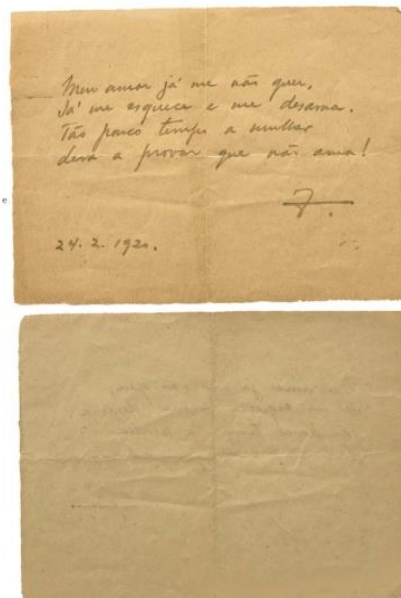 Meu amor já me não quer,
Já me esquece e me desama.
Tão pouco tempo a mulher
leva a provar que não ama!
F.
24. 2. 1920.
e